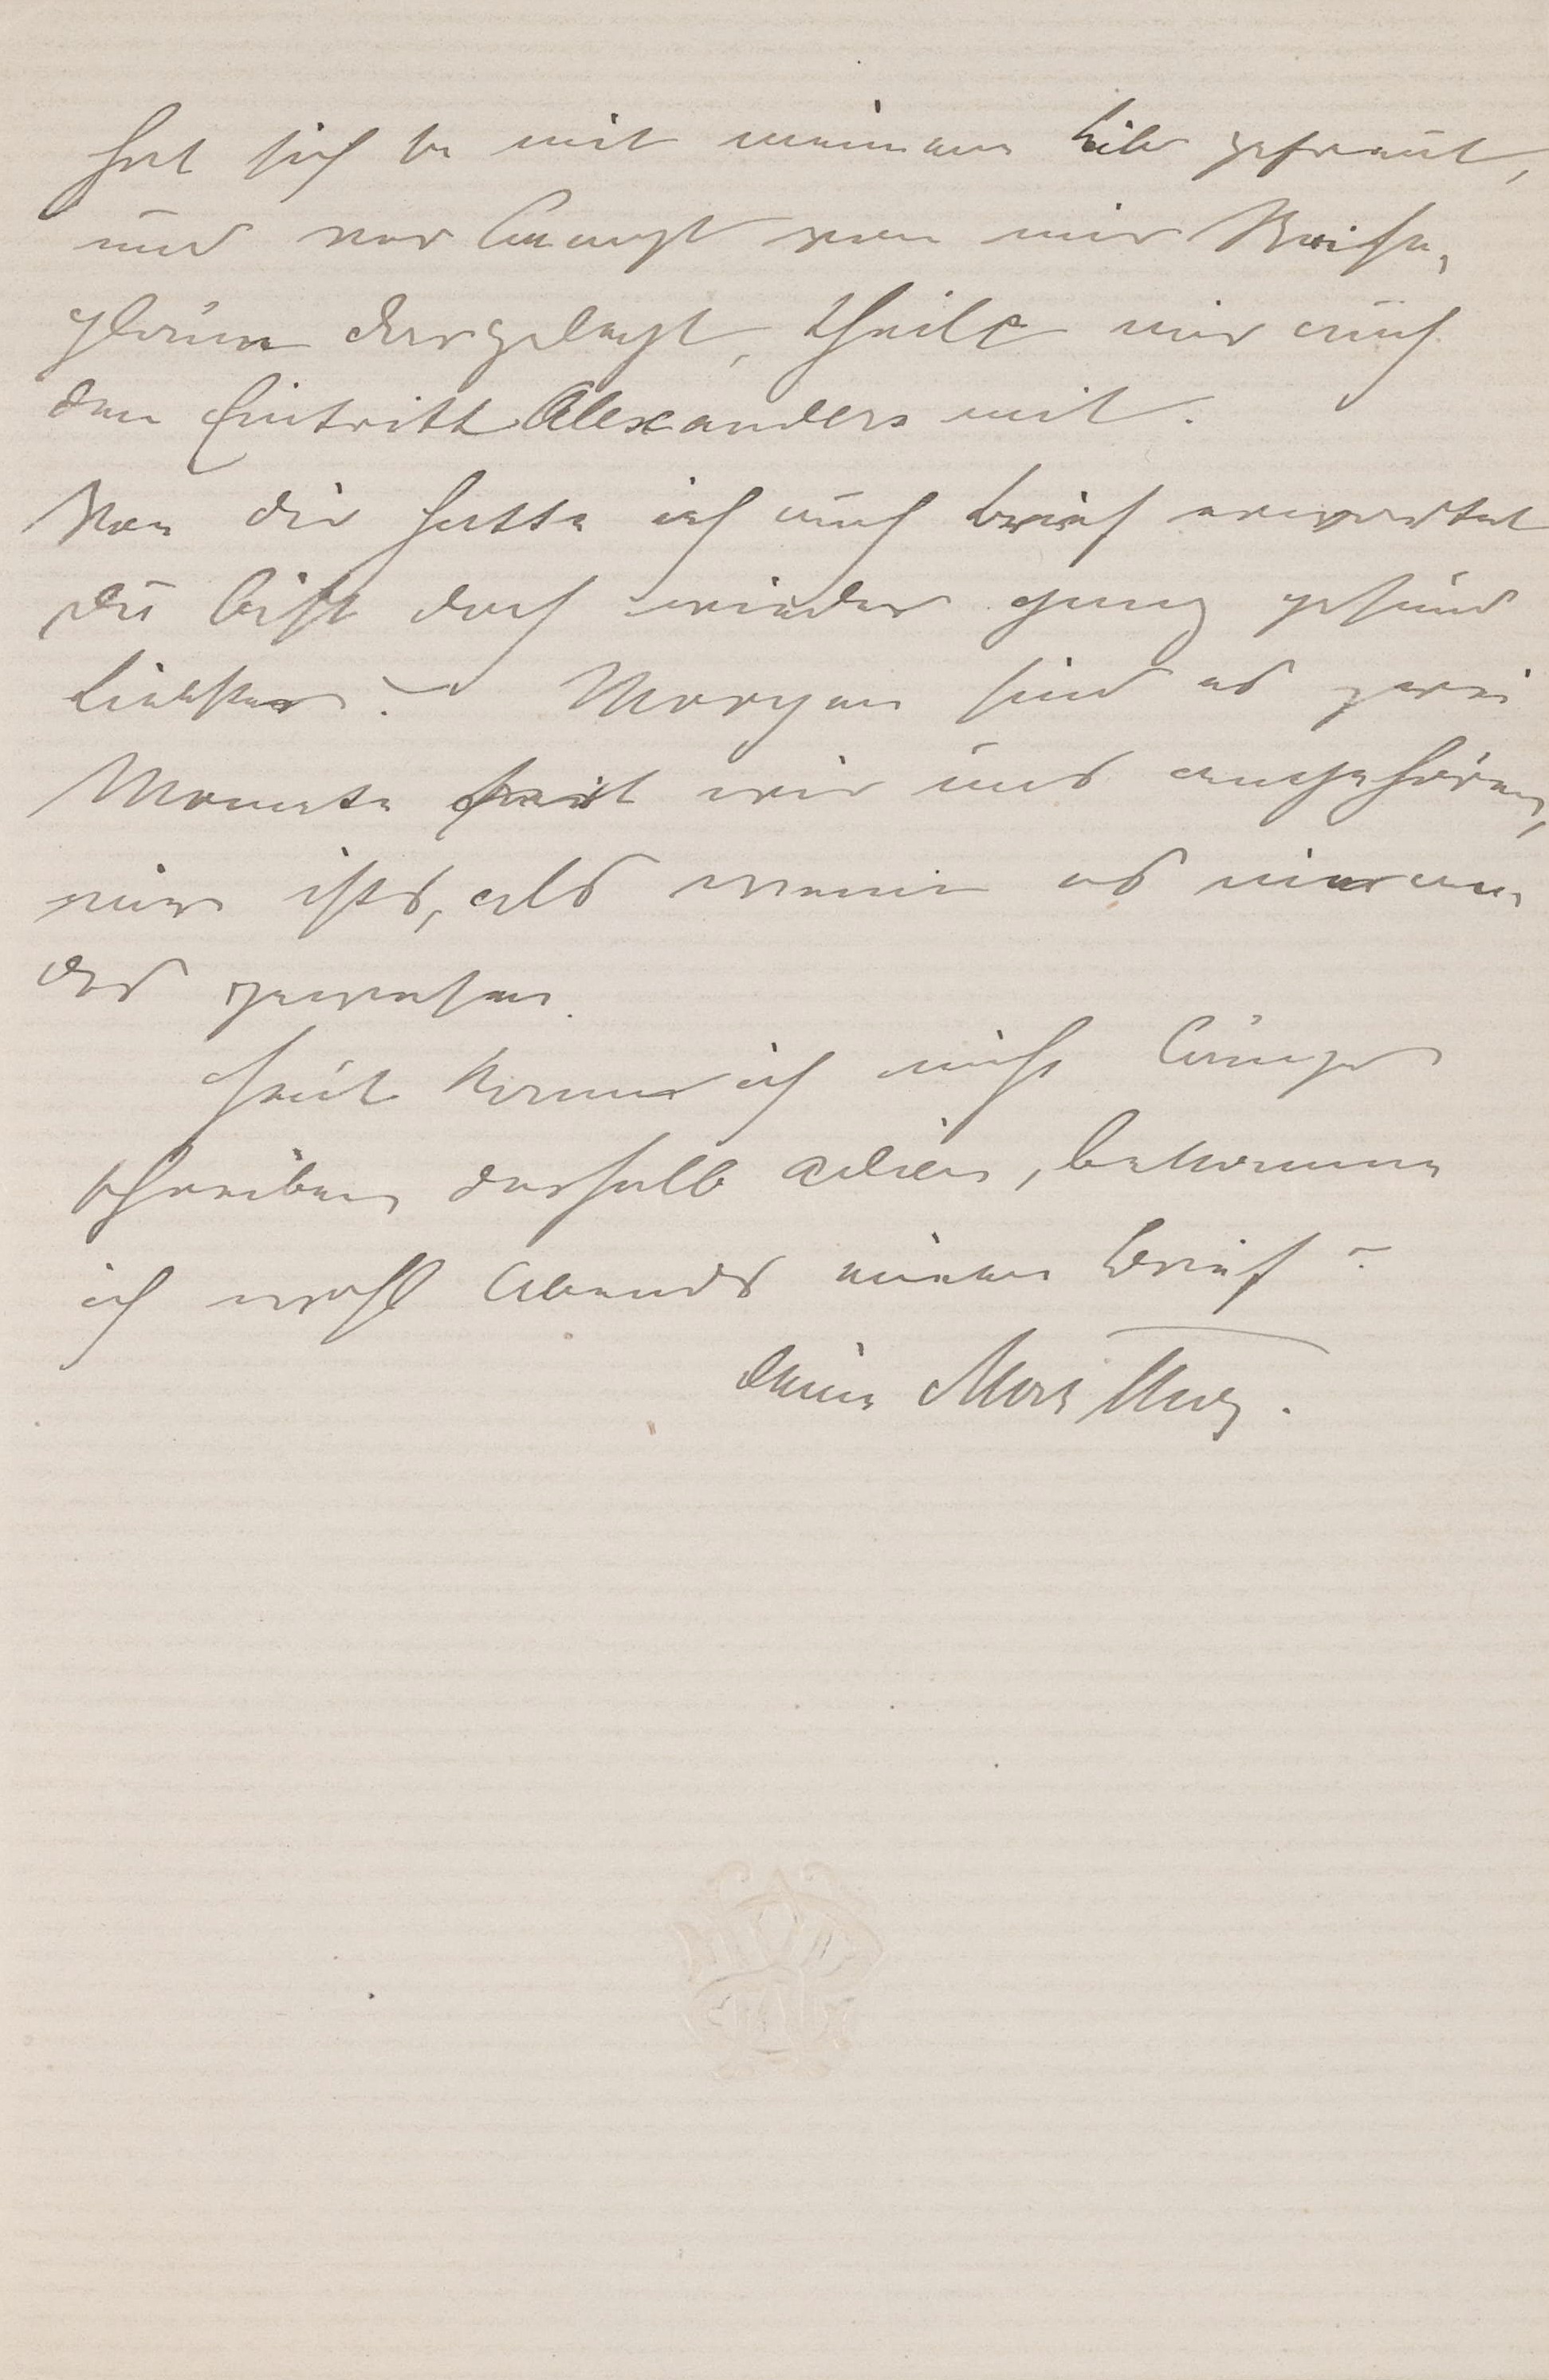 hat sich so mit meinem Bild gefreut,
und verlangt von mir Reise,
pläne dargelegt, theilt mir auch
den Eintritt Alexanders mit.
Von dir hatte ich auch Brief erwartet
du bist doch wieder ganz gesund
Liebster? – Morgen sind es zwei
Monate seit wir uns angehören,
mir ists, als wenn es nie an
ders gewesen.
Heut kann ich nicht länger
schreiben deshalb adieu, bekomme
ich wohl Abends einen Brief?
deine